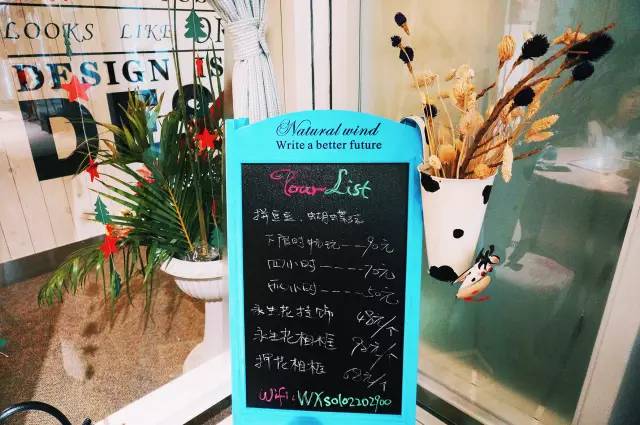 LOOKS LIKE OR
DESIGN IS
DES
Natural wind
Write a better future
Your List
拼豆豆、蝴蝶弦
不限时畅玩---90元
四小时----70元
两小时----50元
永生花挂饰 48元/个
永生花相框 98元/个
押花相框 68元/个
Wifi:WXsolo2202900